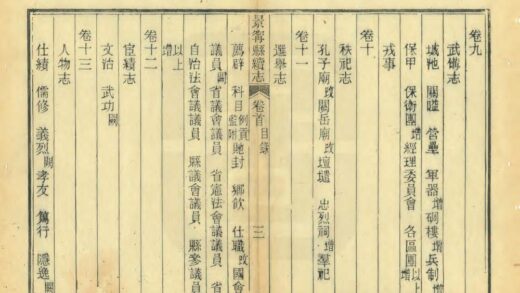 卷九
武備志
城池 關隘 營壘 軍器增 碉樓增 兵制增
保甲 保衛團增 經理委員會 各區團以上增
戎事
卷十
秩祀志
孔子廟改 關岳廟改 壇壝 忠烈祠增 羣祀
卷十一
選舉志
景寧縣續志 卷首 目錄 三
薦辟 科目 例貢監附 貤封 鄉飲 仕職改 國會
議員闕 省議會議員 省憲法會議議員 省
自治法會議議員 縣議會議員 縣參議員
以上增
卷十二
宦績志
文治 武功闕
卷十三
人物志
仕績 儒修 義烈闕 孝友 篤行 隱逸闕